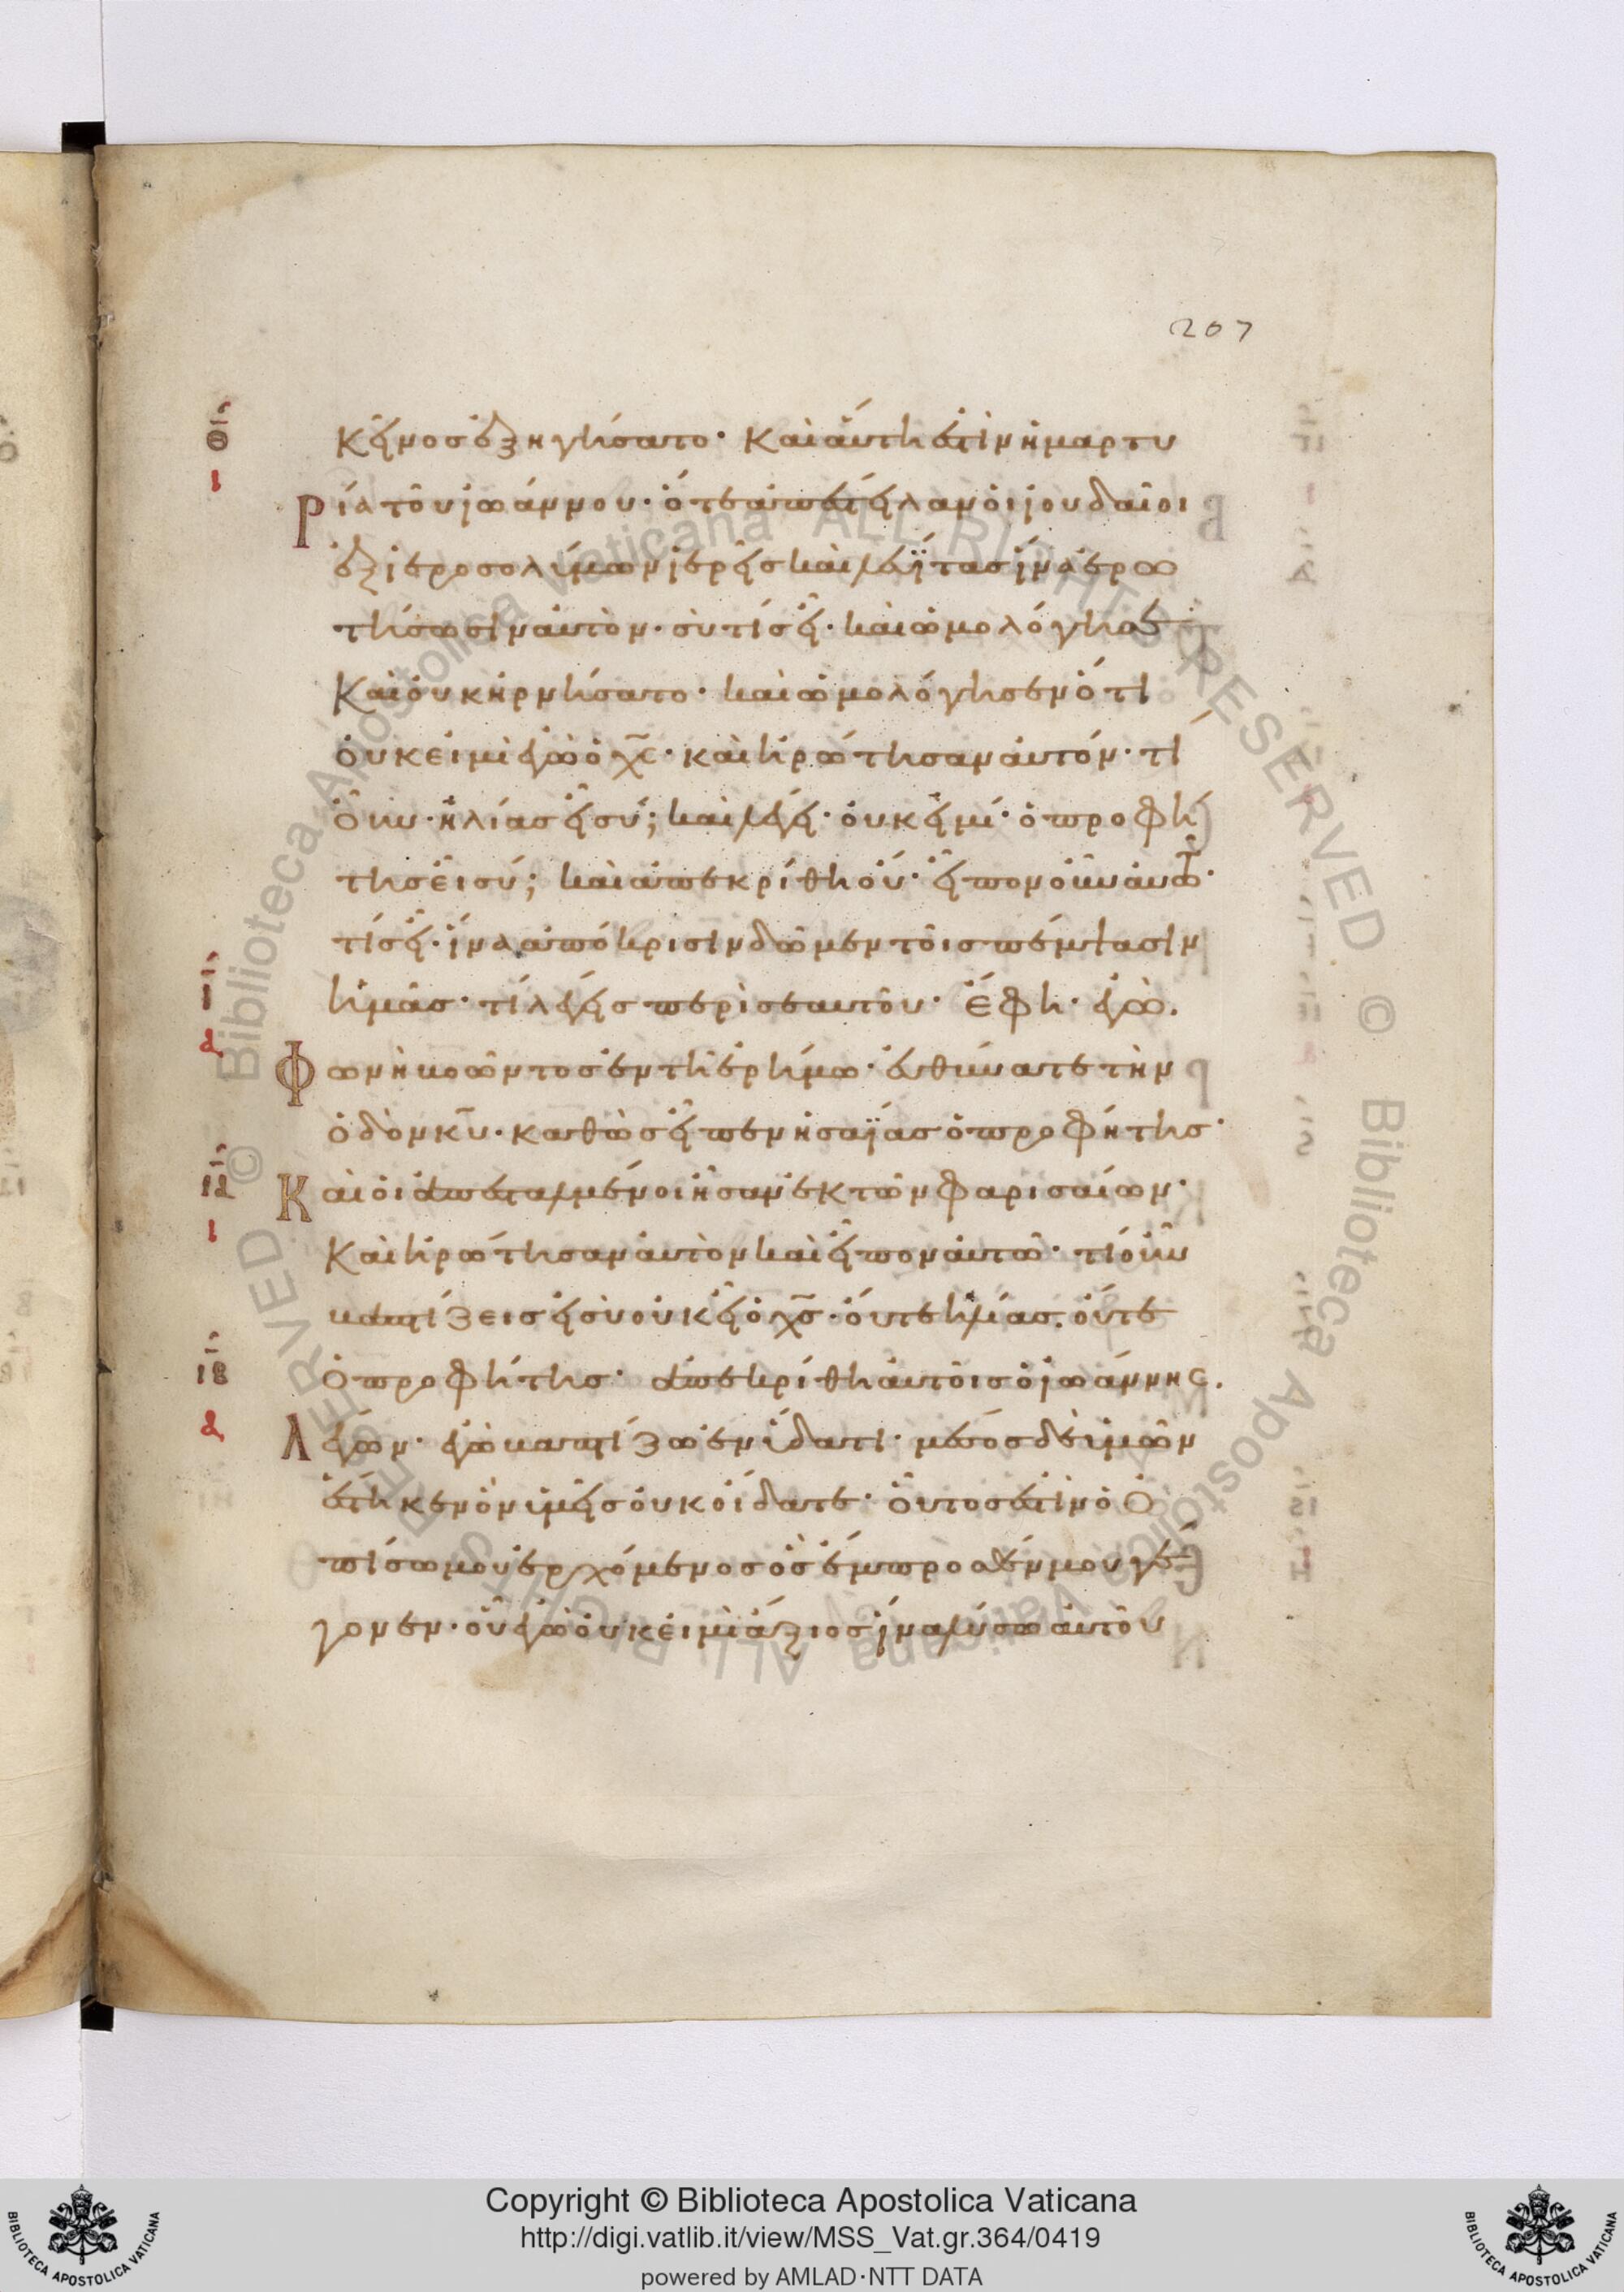 207
θ
ι
κεῖνος ἐξηγήσατο· Καὶ αὕτη ἐστὶν ἡ μαρτυ
ρία τοῦ ἰωάννου· ὅτε ἀπέστειλαν οἱ ἰουδαῖοι
ἐξ ἱεροσολύμων ἱερεῖς καὶ λευΐτας ἵνα ἐρω
τήσωσιν αὐτόν· σὺ τίς εἶ· καὶ ὡμολόγησε
Καὶ οὐκ ἠρνήσατο· καὶ ὡμολόγησεν ὅτι
οὐκ εἰμὶ ἐγὼ ὁ χς· καὶ ἠρώτησαν αὐτόν· τί
οὖν· ἠλίας εἶ σύ; καὶ λέγει· οὐκ εἰμί· ὁ προφή
της εἶ σύ; καὶ ἀπεκρίθη οὔ· εἶπον οὖν αὐτῶ·
τίς εἶ· ἵνα ἀπόκρισιν δῶμεν τοῖς πέμψασιν
ἡμᾶς· τί λέγεις περὶ σεαυτοῦ· ἔφη· ἐγὼ.
ι
α
Φωνὴ βοῶντος ἐν τῇ ἐρήμω· εὐθύνατε τὴν
ὁδὸν κυ· καθὼς εἶπεν ἡσαΐας ὁ προφήτης·
ια
ι
Καὶ οἱ ἀπεσταλμένοι ἦσαν ἐκ τῶν φαρισαίων·
Καὶ ἠρώτησαν αὐτὸν καὶ εἶπον αὐτῶ· τί οὖν
βαπτίζεις εἰ σὺ οὐκ εἶ ὁ χς· οὔτε ἠλίας. οὔτε
ιβ
Ὁ προφήτης· ἀπεκρίθη αὐτοῖς ὁ ἰωάννης.
α
Λέγων· ἐγὼ βαπτίζω ἐν ὕδατι· μέσος δὲ ὑμῶν
ἕστηκεν ὃν ὑμεῖς οὐκ οἴδατε· οὗτός ἐστιν ὁ Ὀ
πίσω μου ἐρχόμενος ὃς ἔμπροσθέν μου γέ
γονεν· οὗ ἐγὼ οὐκ εἰμὶ ἄξιος ἵνα λύσω αὐτοῦ
© Biblioteca Apostolica Vaticana ALL RIGHTS RESERVED
© Biblioteca Apostolica Vaticana ALL RIGHTS RESERVED
Copyright © Biblioteca Apostolica Vaticana
http://digi.vatlib.it/view/MSS_Vat.gr.364/0419
powered by AMLAD·NTT DATA
BIBLIOTECA APOSTOLICA VATICANA
BIBLIOTECA APOSTOLICA VATICANA